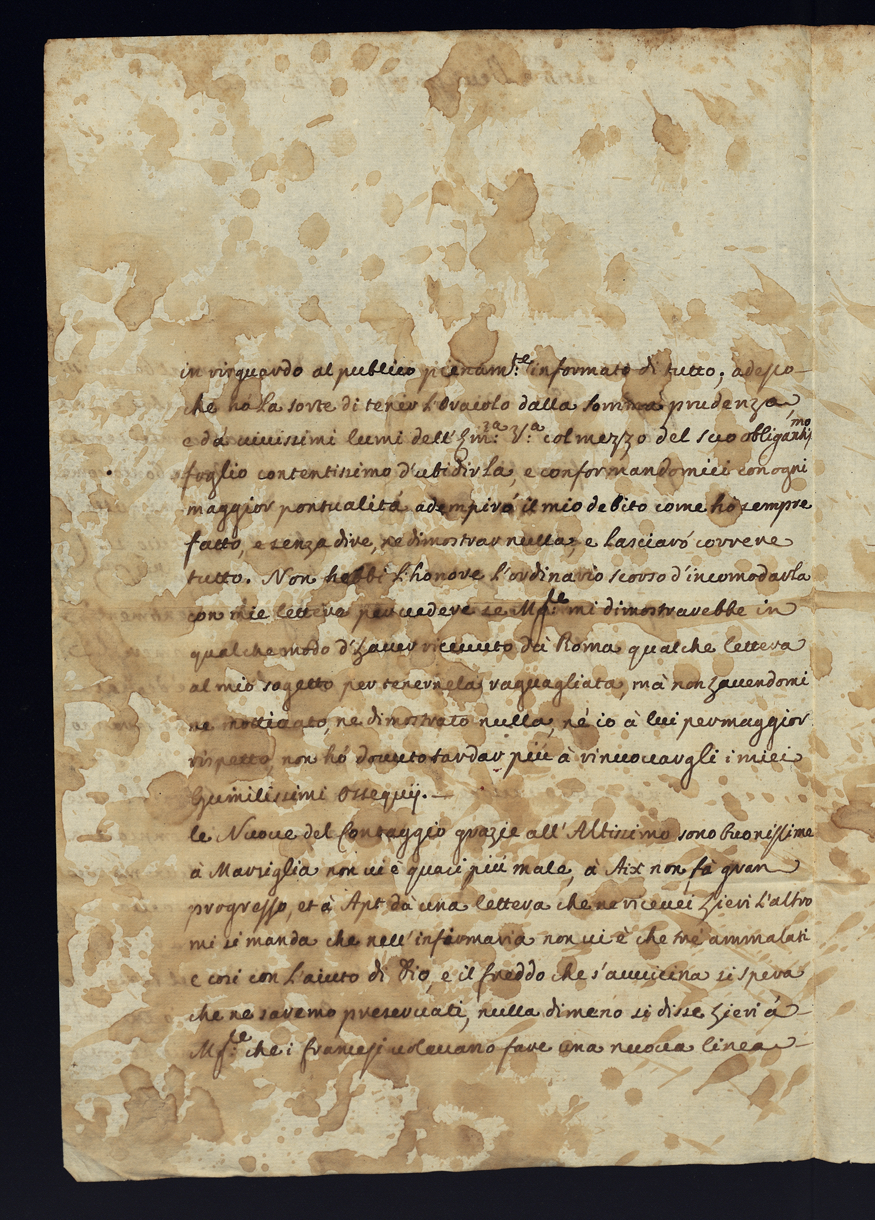 in risguardo al publico pienam:te informato di tutto; adesso
che hò la sorte di tener l'Oracolo dalla somma prudenza,
e dà vivissimi lumi dell'Em:za V:a col mezzo del suo obligantis:mo
foglio contentissimo d'ubidirla, e conformandomici con ogni
maggior pontualitá adempirò il mio debito come hò sempre
fatto, e senza dire, ne dimostrar nulla, e lasciarò correre
tutto. Non hebbi l'honore l'ordinario scorso d'incomodarla
con mie lettere per vedere se M:gre mi dimostrarebbe in
qualche modo d'haver ricevuto dà Roma qualche lettera
al mio sogetto per tenernela raguagliata, mà non havendomi
ne motivato, ne dimostrato nulla, né io à lui per maggior
rispetto, non hò dovuto tardar più à rinuovargli i miei
humilissimi ossequij.—
le Nuove del Contaggio grazie all'Altissimo sono buonissime
à Marsiglia non vi è quasi più male, à Aix non fà gran
progresso, et à Apt dà una lettera che ne ricevei hieri l'altro
mi si manda che nell'infirmaria non vi è che tré ammalati
e così con l'aiuto di Dio, e il freddo che s'avvicina si spera
che ne saremo preservati, nulla di meno si disse hieri à
M:gre che i francesi volevano fare una nuova linea